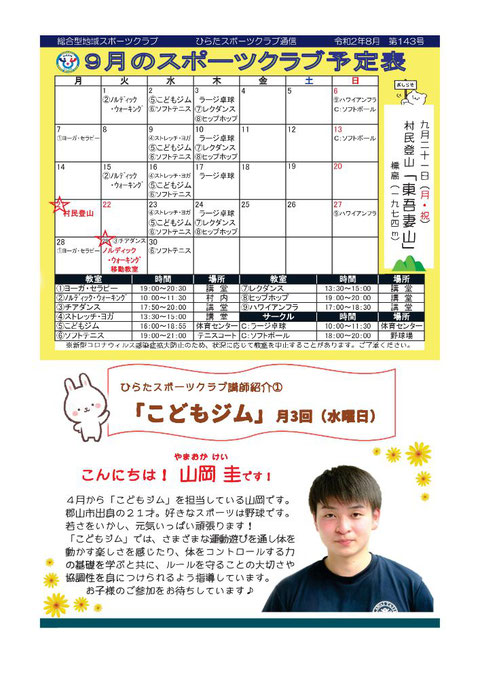 総合型地域スポーツクラブ ひらたスポーツクラブ通信 令和2年8月 第143号
9月のスポーツクラブ予定表
月 火 水 木 金 土 日
1 2 3 4 5 6
②ノルディック・ウォーキング ⑤こどもジム ⑥ソフトテニス ラージ卓球 ⑦レクダンス ⑧ヒップホップ ⑨ハワイアンフラ C:ソフトボール
7 8 9 10 11 12 13
①ヨーガ・セラピー ④ストレッチ・ヨガ ⑤こどもジム ⑥ソフトテニス ラージ卓球 ⑦レクダンス ⑧ヒップホップ C:ソフトボール
14 15 16 17 18 19 20
②ノルディック・ウォーキング ④ストレッチ・ヨガ ⑤こどもジム ⑥ソフトテニス ラージ卓球
村民登山 22 23 24 25 26 27
④ストレッチ・ヨガ ⑤こどもジム ⑥ソフトテニス ラージ卓球 ⑦レクダンス ⑧ヒップホップ ⑨ハワイアンフラ
28 ③チアダンス 30
①ヨーガ・セラピー ノルディック・ウォーキング 移動教室 ⑥ソフトテニス
九月二十一日(月・祝)
村民登山「東吾妻山」
標高(一九七四m)
教室 時間 場所 教室 時間 場所
①ヨーガ・セラピー 19:00~20:30 講堂 ⑦レクダンス 13:30~15:00 講堂
②ノルディック・ウォーキング 10:00~11:30 村内 ⑧ヒップホップ 19:00~20:00 講堂
③チアダンス 17:50~20:00 講堂 ⑨ハワイアンフラ 19:00~21:00 講堂
④ストレッチ・ヨガ 13:30~15:00 講堂 サークル 時間 場所
⑤こどもジム 16:00~18:55 体育センター C:ラージ卓球 10:00~11:30 体育センター
⑥ソフトテニス 19:00~21:00 テニスコート C:ソフトボール 18:00~20:00 野球場
※新型コロナウィルス感染症拡大防止のため、状況に応じて教室を中止することがあります。ご了承ください。
ひらたスポーツクラブ講師紹介①
「こどもジム」月3回(水曜日)
やまおか けい
こんにちは!山岡 圭です!
4月から「こどもジム」を担当している山岡です。
郡山市出身の21才。好きなスポーツは野球です。
若さをいかし、元気いっぱい頑張ります!
「こどもジム」では、さまざまな運動遊びを通し体を
動かす楽しさを感じたり、体をコントロールする力
の基礎を学ぶと共に、ルールを守ることの大切さや
協調性を身につけられるよう指導しています。
お子様のご参加をお待ちしています♪